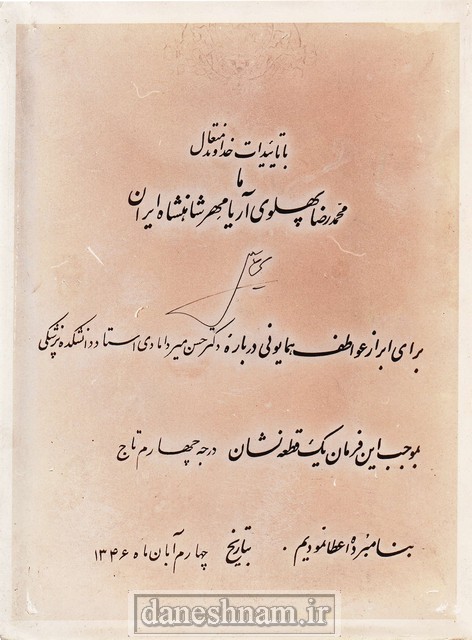 با تائیدات خداوند متعال
ما
محمدرضا پهلوی آریامهر شاهنشاه ایران
برای ابراز عواطف همایونی درباره دکتر حسن میردامادی استاد دانشکده پزشکی
بموجب این فرمان یک قطعه نشان درجه چهارم تاج
بنامبرده اعطا نمودیم . بتاریخ چهارم آبان ماه ۱۳۴۶
daneshnam.ir